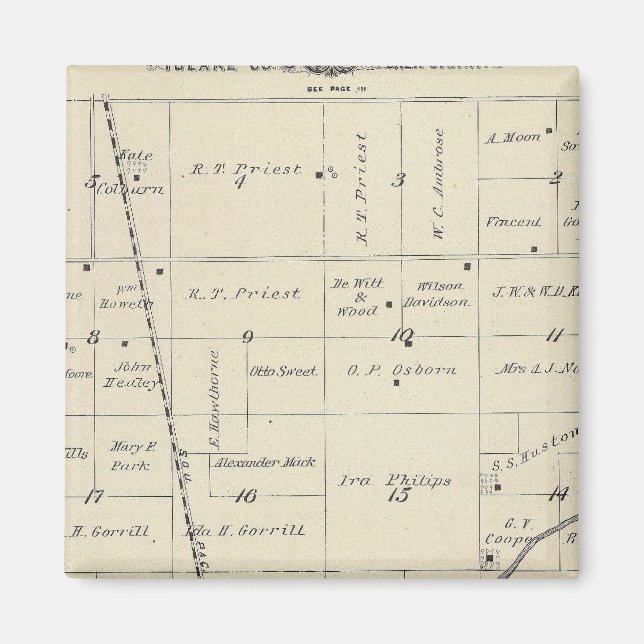 TULARE CO.
SEE PAGE 111
Kate
Colburn
5
R. T. Priest
4
R. T. Priest
3
W. C. Ambrose
A. Moon
2
Vincent
Wm
Howeth
R. T. Priest
De Witt
&
Wood
Wilson
Davidson
J. W. & W. U.
8
9
10
11
John
Healey
E. Hawthorne
Otto Sweet
O. P. Osborn
Mrs A. J.
Mary E.
Park
SOU.
PAC.
Alexander Mack
Ira Philips
S. S. Huston
17
16
15
14
H. Gorrill
Ida H. Gorrill
G. V.
Cooper